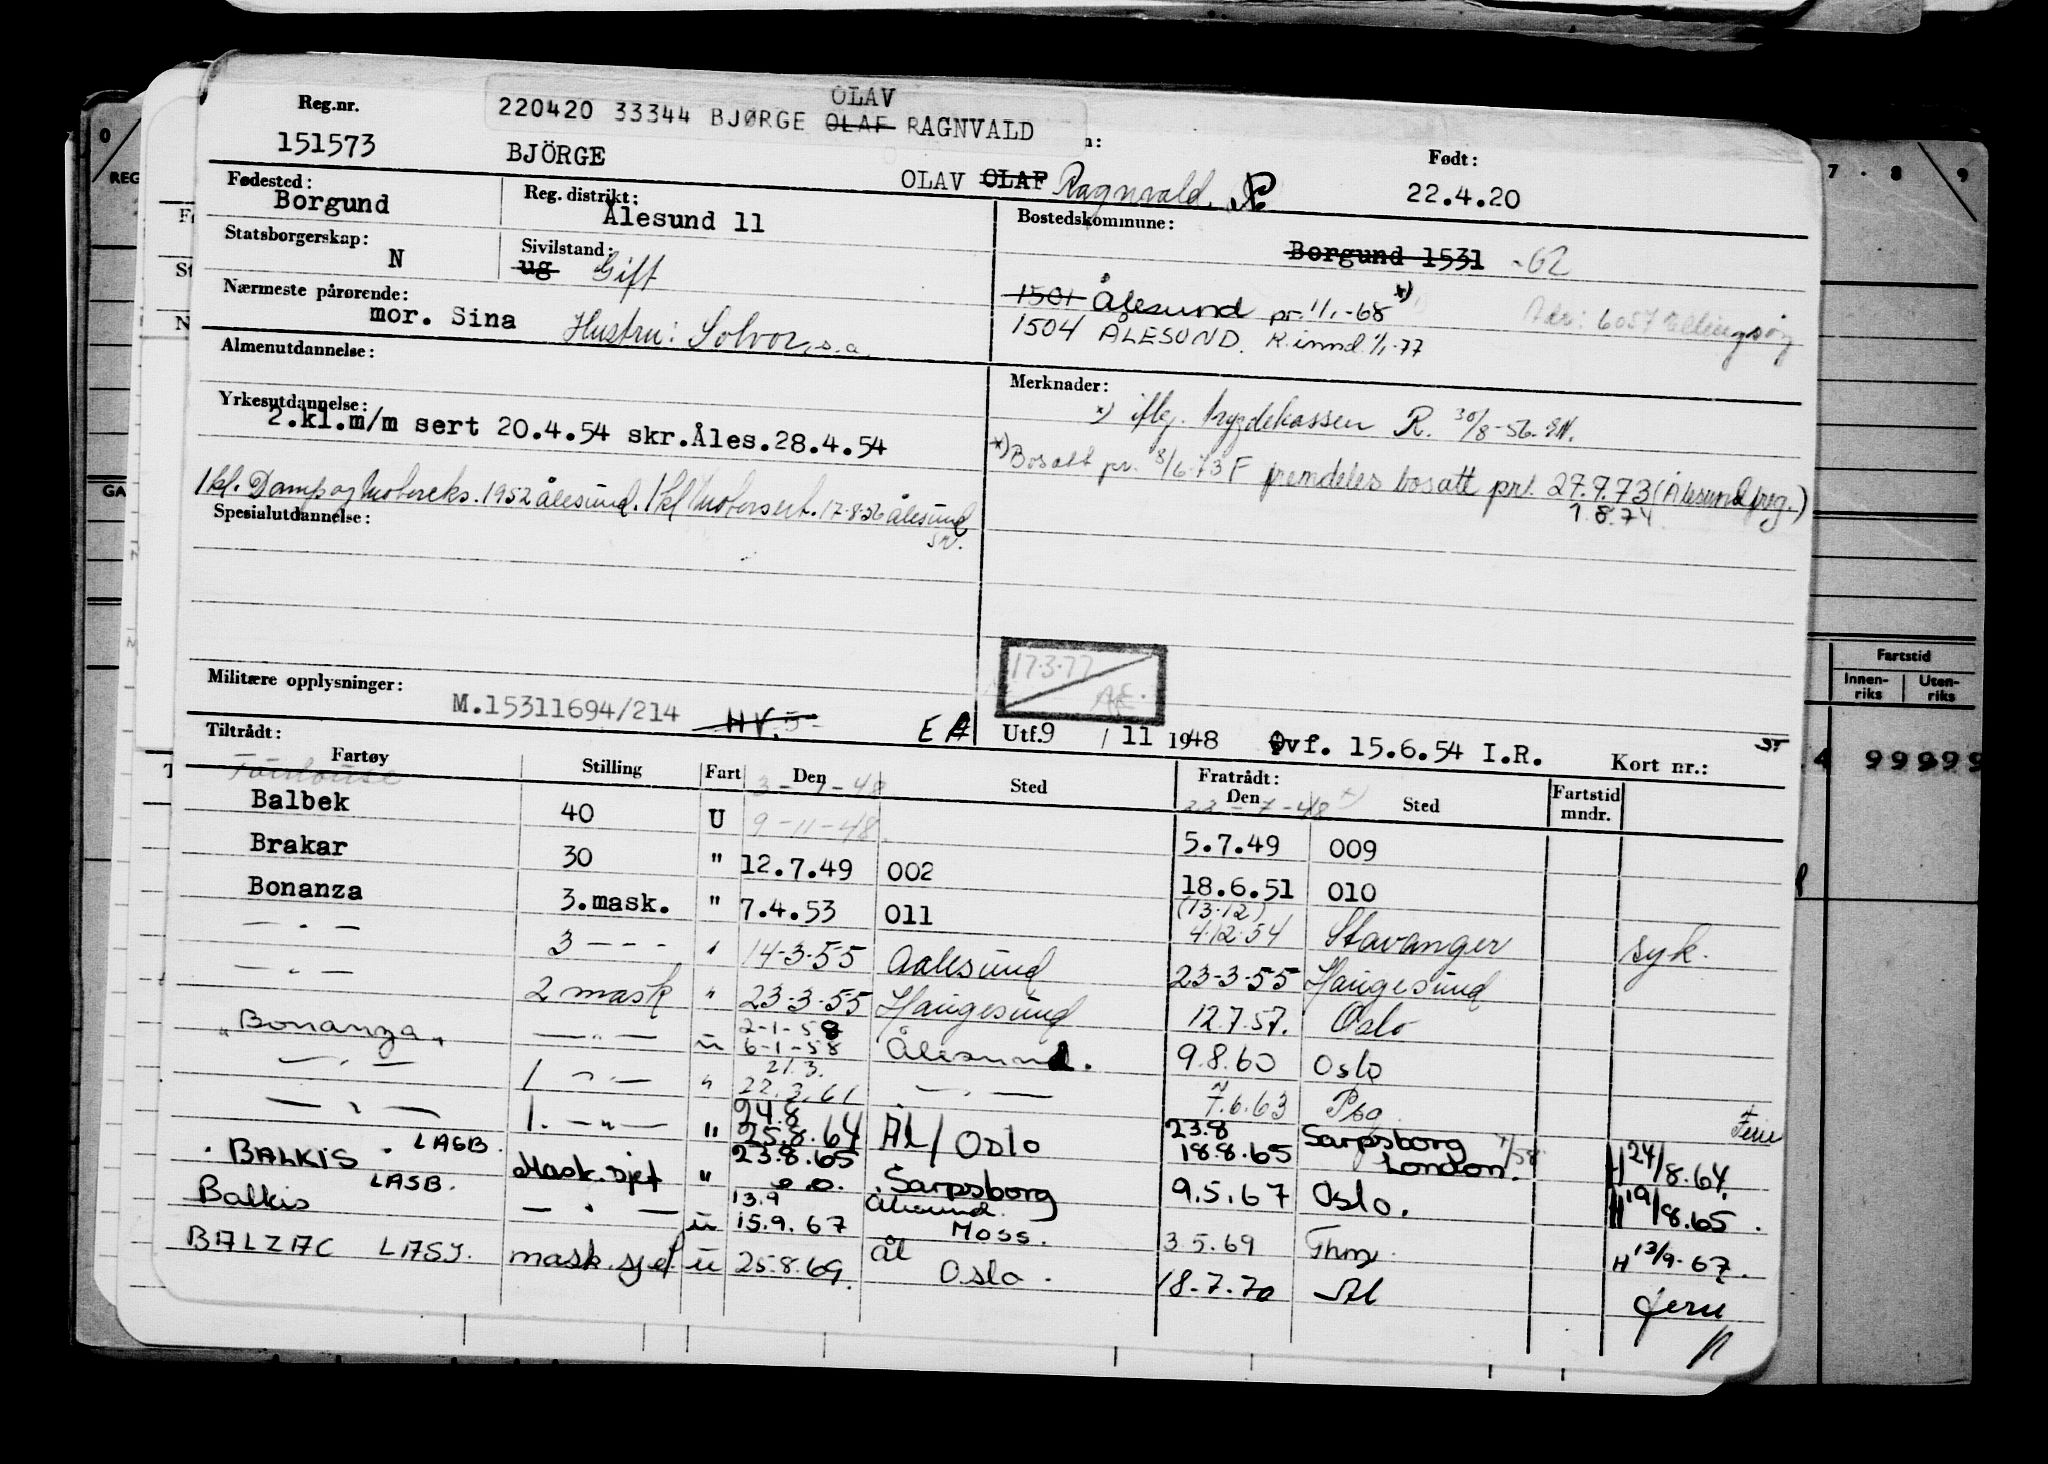 OLAV
Reg.nr. 220420 33344 BJØRGE OLAF RAGNVALD
151573 BJÖRGE OLAV OLAF Ragnvald. Født: 22.4.20
Fødested: Borgund Reg. distrikt: Ålesund 11 Bostedskommune:
Borgund 1531 -62
Statsborgerskap: N Sivilstand: ug Gift
1501 Ålesund pr. 1/1.-68 x)
Adr: 6057 Ellingsøy
Nærmeste pårørende: mor. Sina Hustru: Solvor, s.a.
1504 ÅLESUND. R.innd. 1/1-77
Almenutdannelse: Merknader:
x) iflg. trygdekassen R. 30/8-56.
Yrkesutdannelse:
2.kl.m/m sert 20.4.54 skr.Åles.28.4.54
x) Bosatt pr. 8/6.73 F fremdeles bosatt pr. 27.9.73 (Ålesund freg.)
1.8.74
1 kl. Damp og Motoreks. 1952 Ålesund. 1 kl Motorsert. 17-8-56 Ålesund
Spesialutdannelse:
17.3.77
Æ.
Militære opplysninger:
M.15311694/214 HV.5 E A Utf.9 / 11 1948 Ovf. 15.6.54 I.R. Kort nr.:
Tiltrådt: Fratrådt:
Fartøy Stilling Fart Den Sted Den Sted Fartstid mndr.
Toulouse 3-7-48 22-7-48 x)
Balbek 40 U 9-11-48 5.7.49 009
Brakar 30 " 12.7.49 002 18.6.51 010
Bonanza 3.mask. " 7.4.53 011 (13.12) 4.12.54 Stavanger syk.
— " — 3 - - - " 14-3-55 Aalesund 23-3-55 Haugesund
— " — 2 mask " 23-3-55 Haugesund 12.7.57. Oslo
2-1-58
" Bonanza " — " — u 6-1-58 Ålesund. 9.8.60 Oslo
21.3.
— " — 1 — " — " 22.3.61 — " — 7.6.63 Psg. Ferie
24.8
— " — 1. — " — " 25.8.64 Ål/Oslo 23.8 18.8.65 Sarpsborg London. H 24/8.64.
. BALKIS . LAGB. Mask.sjef " 23.8.65 Sarpsborg 9.5.67 Oslo. H 19/8.65.
13.9 Ålesund.
Balkis LASB. — " — u 15.9.67 Moss. 3.5.69 H 13/9.67.
BALZAC LASJ. mask.sjef u 25.8.69. Ål Oslo. 18.7.70 Ål ferie
0 7 . 8 9
REG
GA
Fartstid
Innen-riks Uten-riks
4 99999